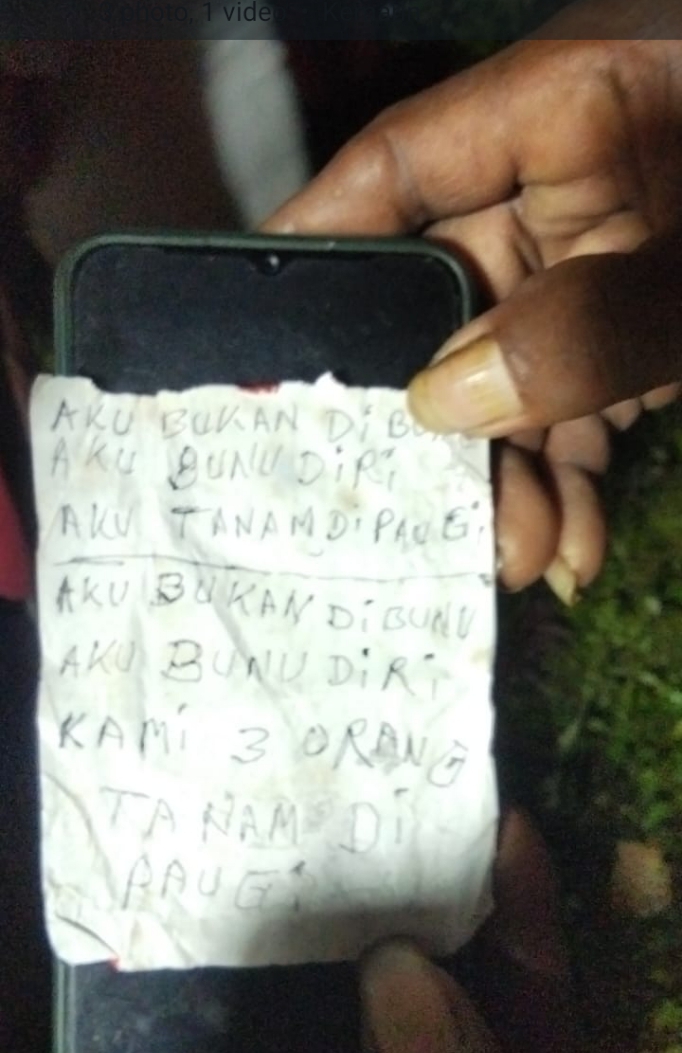 1 video
AKU BUKAN DI
AKU BUNU DiRi
AKU TANAM Di PAUGi
AKU BUKAN DiBUNU
AKU BUNU DiRi
KAMi 3 ORANG
TANAM Di
PAUGi